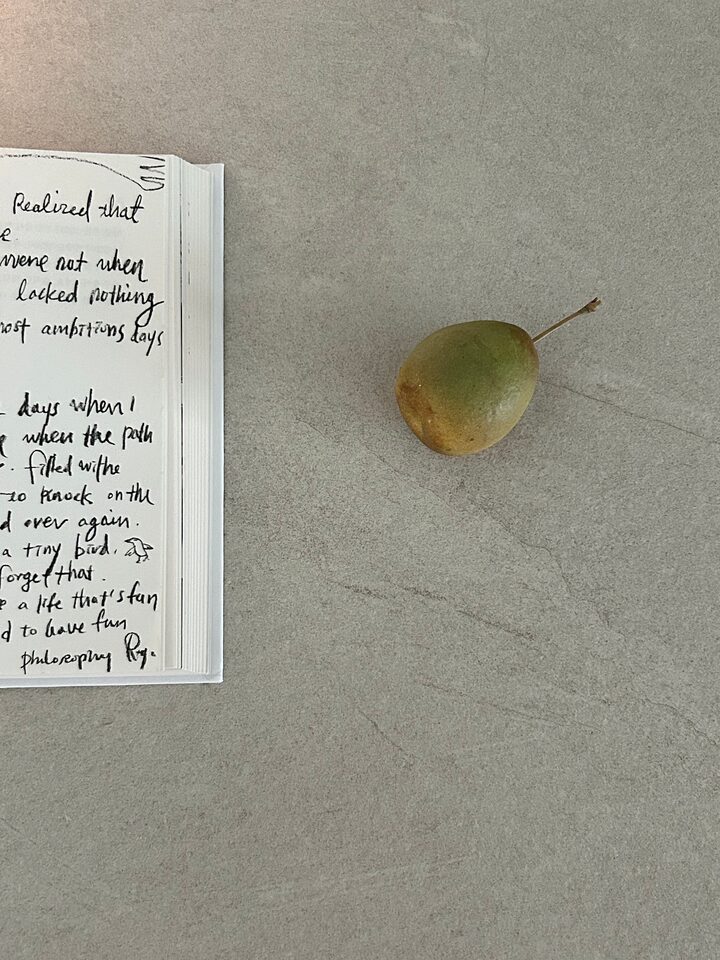 Realized that
e.
were not when
lacked nothing
most ambitions days
days when I
when the path
filled withe
to knock on the
d over again.
a tiny bird.
forget that.
e a life that's fun
d to have fun
philosophy Ry.